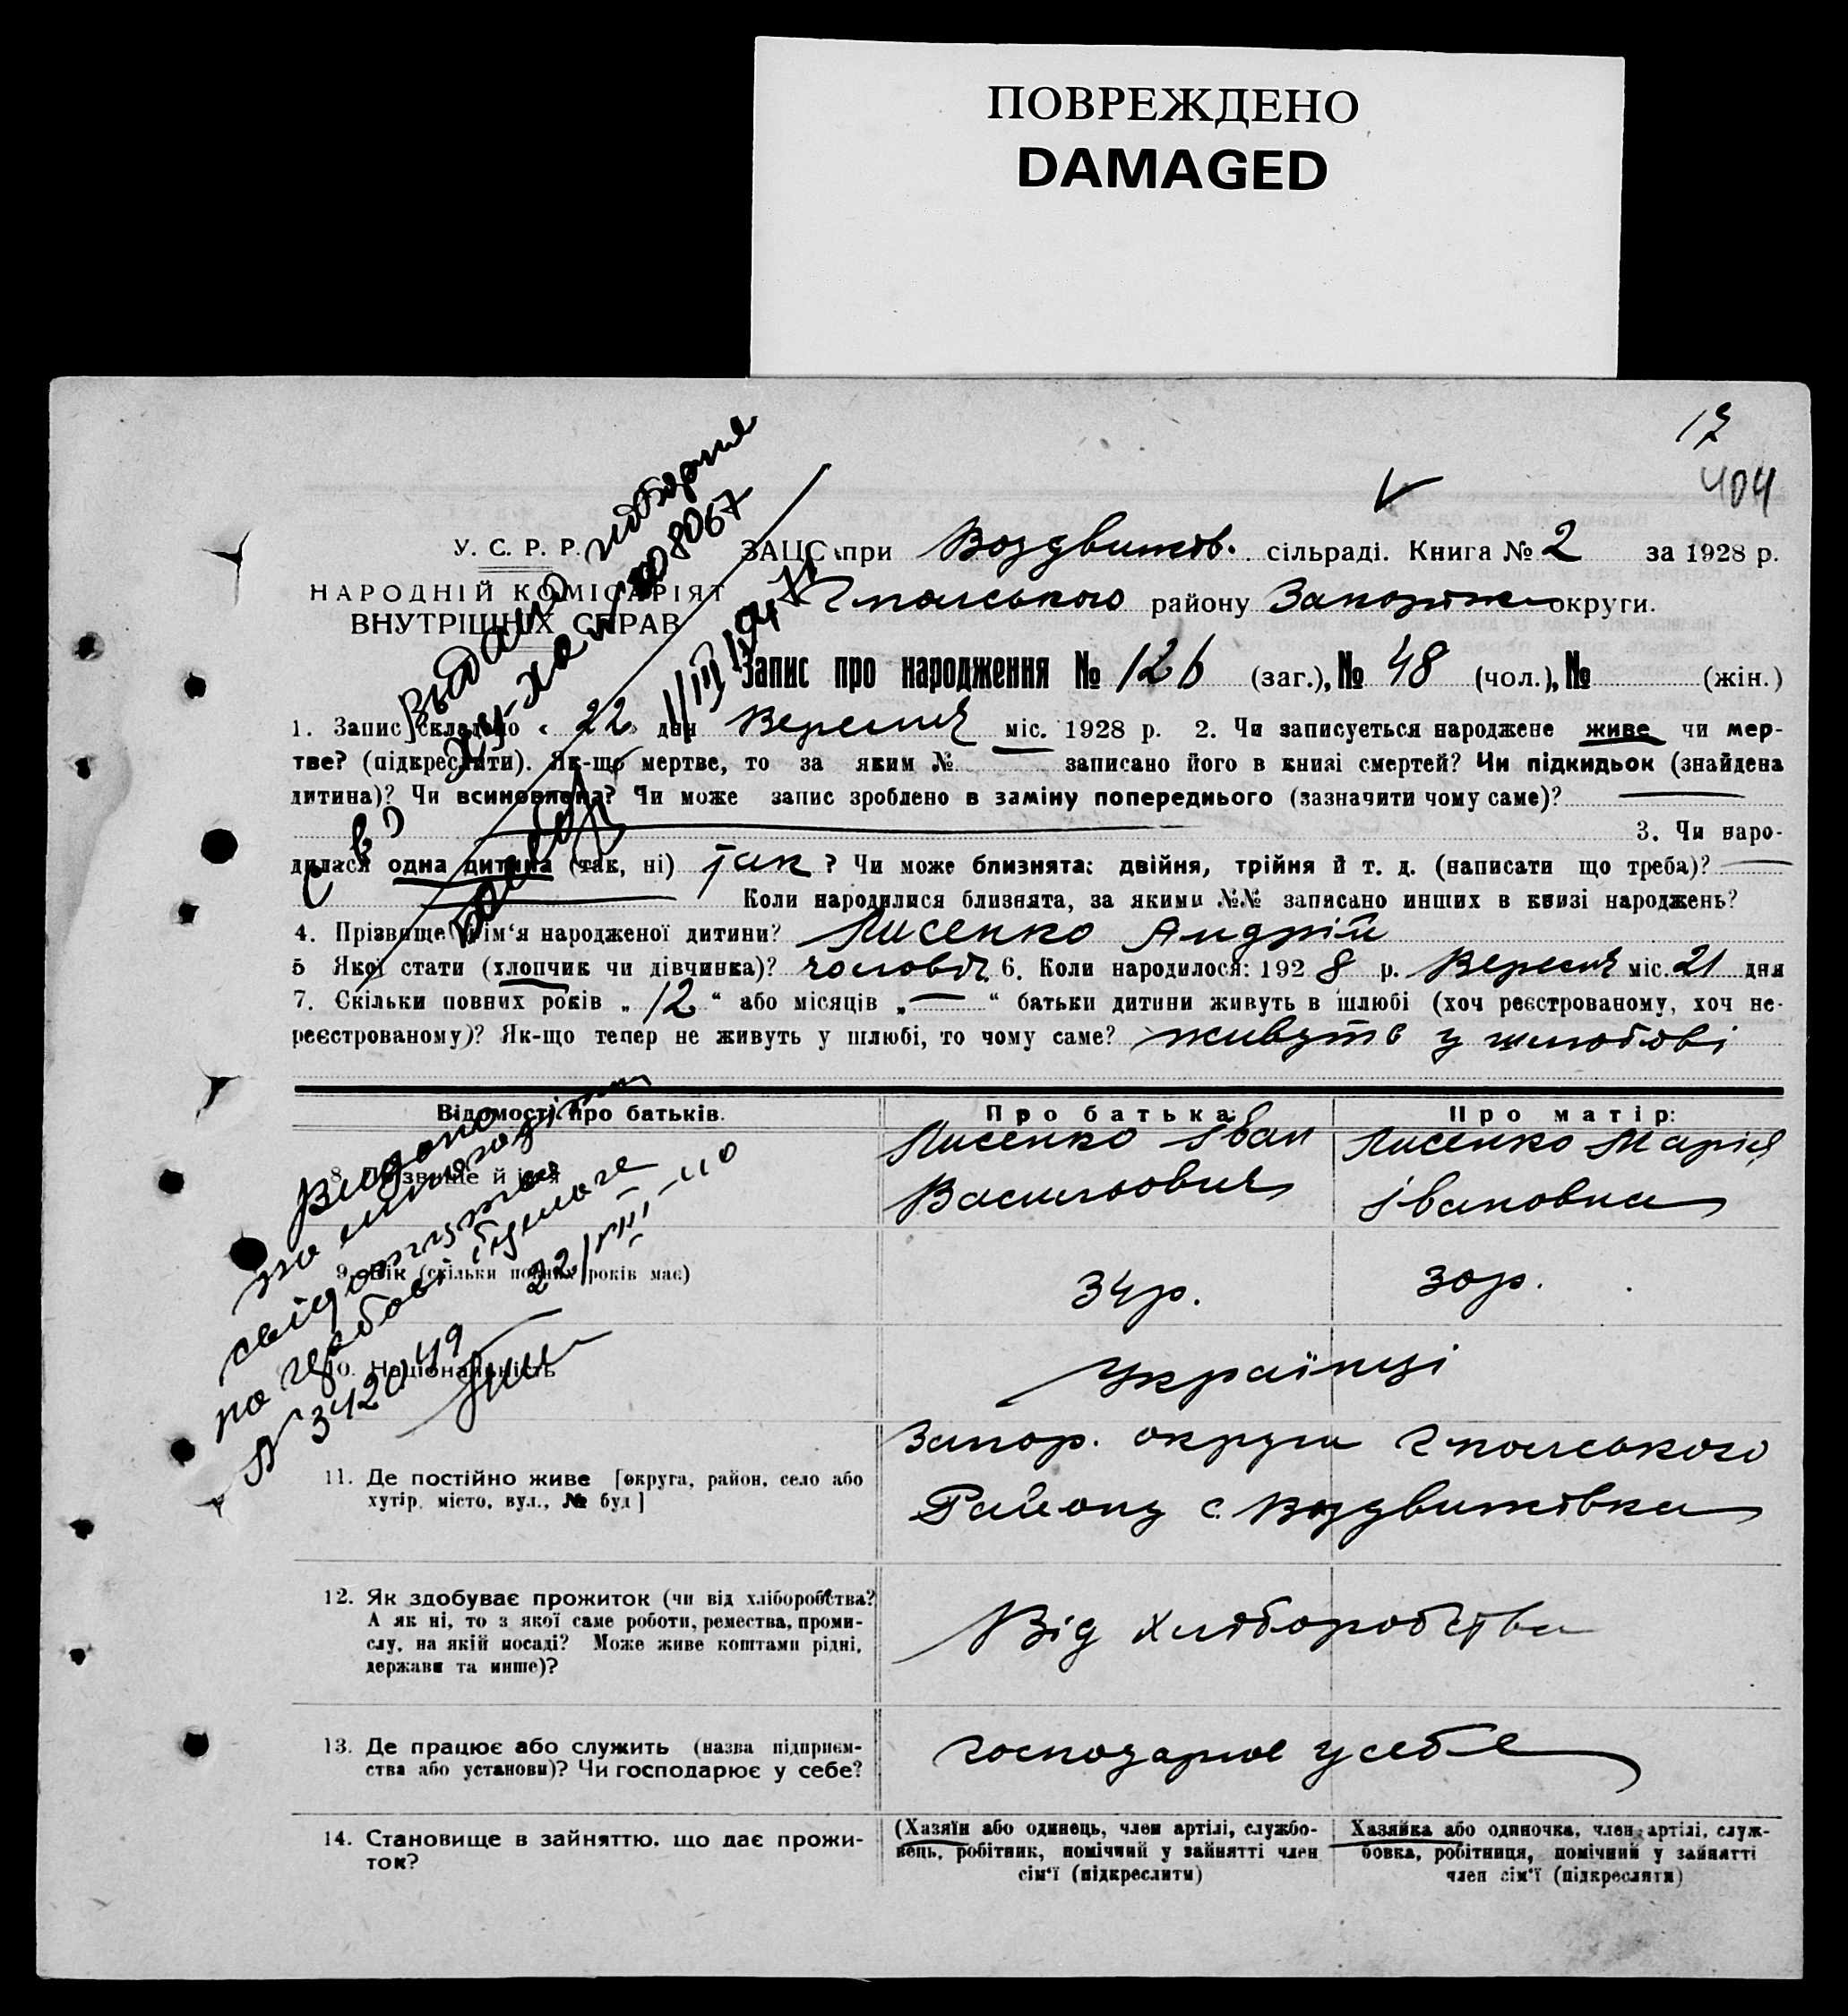 ПОВРЕЖДЕНО
DAMAGED
17
404
У. С. Р. Р.
НАРОДНІЙ КОМІСАРІЯТ
ВНУТРІШНІХ СПРАВ
ЗАЦС при Воздвижів. сільраді. Книга № 2 за 1928 р.
Гпольського району Запоріж округи.
Запис про народження № 126 (заг.), № 48 (чол.), № (жін.)
1. Запис складено « 22 » дня Вересня міс. 1928 р. 2. Чи записується народжене живе чи мер-
тве? (підкреслити). Як-що мертве, то за яким № записано його в книзі смертей? Чи підкидьок (знайдена
дитина)? Чи всиновлена? Чи може запис зроблено в заміну попереднього (зазначити чому саме)?
3. Чи наро-
дилася одна дитина (так, ні) так ? Чи може близнята: двійня, трійня й т. д. (написати що треба)?
Коли народилися близнята, за якими №№ записано инших в книзі народжень?
4. Прізвище й ім'я народженої дитини? Лисенко Андрій
5 Якої стати (хлопчик чи дівчинка)? чоловіч. 6. Коли народилося: 1928 р. Вересня міс. 21 дня
7. Скільки повних років „ 12 “ або місяців „ — “ батьки дитини живуть в шлюбі (хоч реєстрованому, хоч не-
реєстрованому)? Як-що тепер не живуть у шлюбі, то чому саме? живуть у шлюбові
Відомості про батьків.
Про батька:
Про матір:
8. Прізвище й ім'я
Лисенко Іван
Васильович
Лисенко Марія
Івановна
9. Вік (скільки повних років має)
34р.
30р.
10. Національність
Українці
11. Де постійно живе [округа, район, село або
хутір, місто, вул., № буд]
Запор. округи Гпольського
Району с. Воздвижівка
12. Як здобуває прожиток (чи від хліборобства?
А як ні, то з якої саме роботи, ремества, проми-
слу, на якій посаді? Може живе коштами рідні,
держави та инше)?
Від хліборобства
13. Де працює або служить (назва підприєм-
ства або установи)? Чи господарює у себе?
господарює у себе
14. Становище в зайняттю, що дає прожи-
ток?
(Хазяїн або одинець, член артілі, службо-
вець, робітник, помічний у зайнятті член
сім'ї (підкреслити)
Хазяйка або одиночка, член артілі, служ-
бовка, робітниця, помічний у зайнятті
член сім'ї (підкреслити)
Видано
22/VIII-40
№ 342049